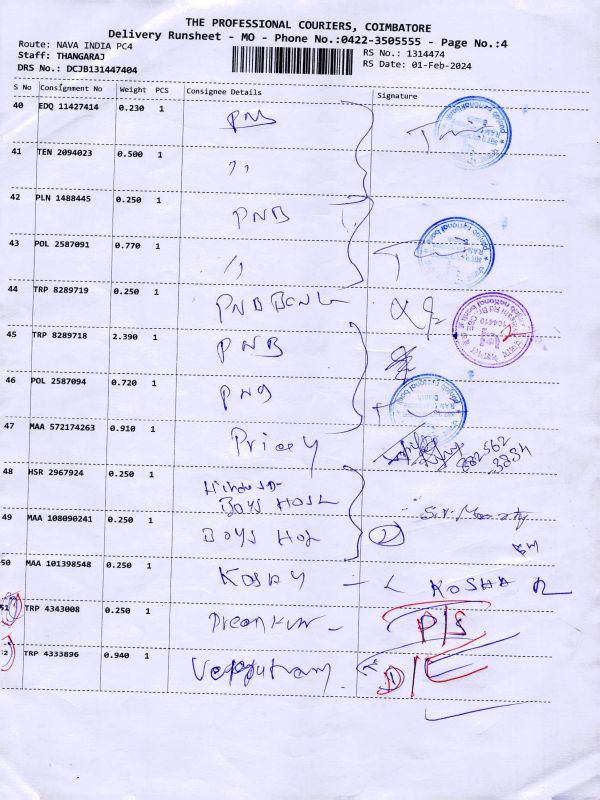 THE PROFESSIONAL COURIERS, COIMBATORE
Delivery Runsheet - MO - Phone No.:0422-3505555 - Page No.:4
Route: NAVA INDIA PC4
RS No.: 1314474
Staff: THANGARAJ
RS Date: 01-Feb-2024
DRS No.: DCJB131447404
S No Consignment No Weight PCS Consignee Details Signature
40 EDQ 11427414 0.230 1 PNB
41 TEN 2094023 0.500 1 ,,
42 PLN 1488445 0.250 1 PNB
43 POL 2587091 0.770 1 ,,
44 TRP 8289719 0.250 1 PNB Bank
45 TRP 8289718 2.390 1 PNB
46 POL 2587094 0.720 1 PNB
47 MAA 572174263 0.910 1
48 HSR 2967924 0.250 1 BOYS
49 MAA 108090241 0.250 1 BOYS 2
50 MAA 101398548 0.250 1 KOSHA
51 TRP 4343008 0.250 1 P/S
52 TRP 4333896 0.940 1